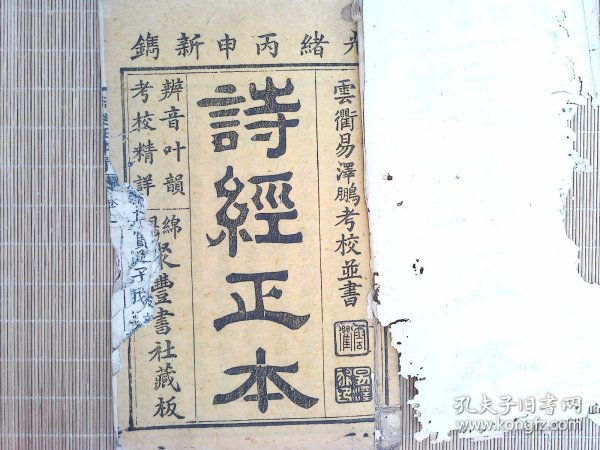 光緒丙申新鐫
雲衢易澤鵬考校並書
詩經正本
辨音叶韻
考校精詳
綿
聚豐書社藏板
雲衢
孔夫子旧书网
www.kongfz.com